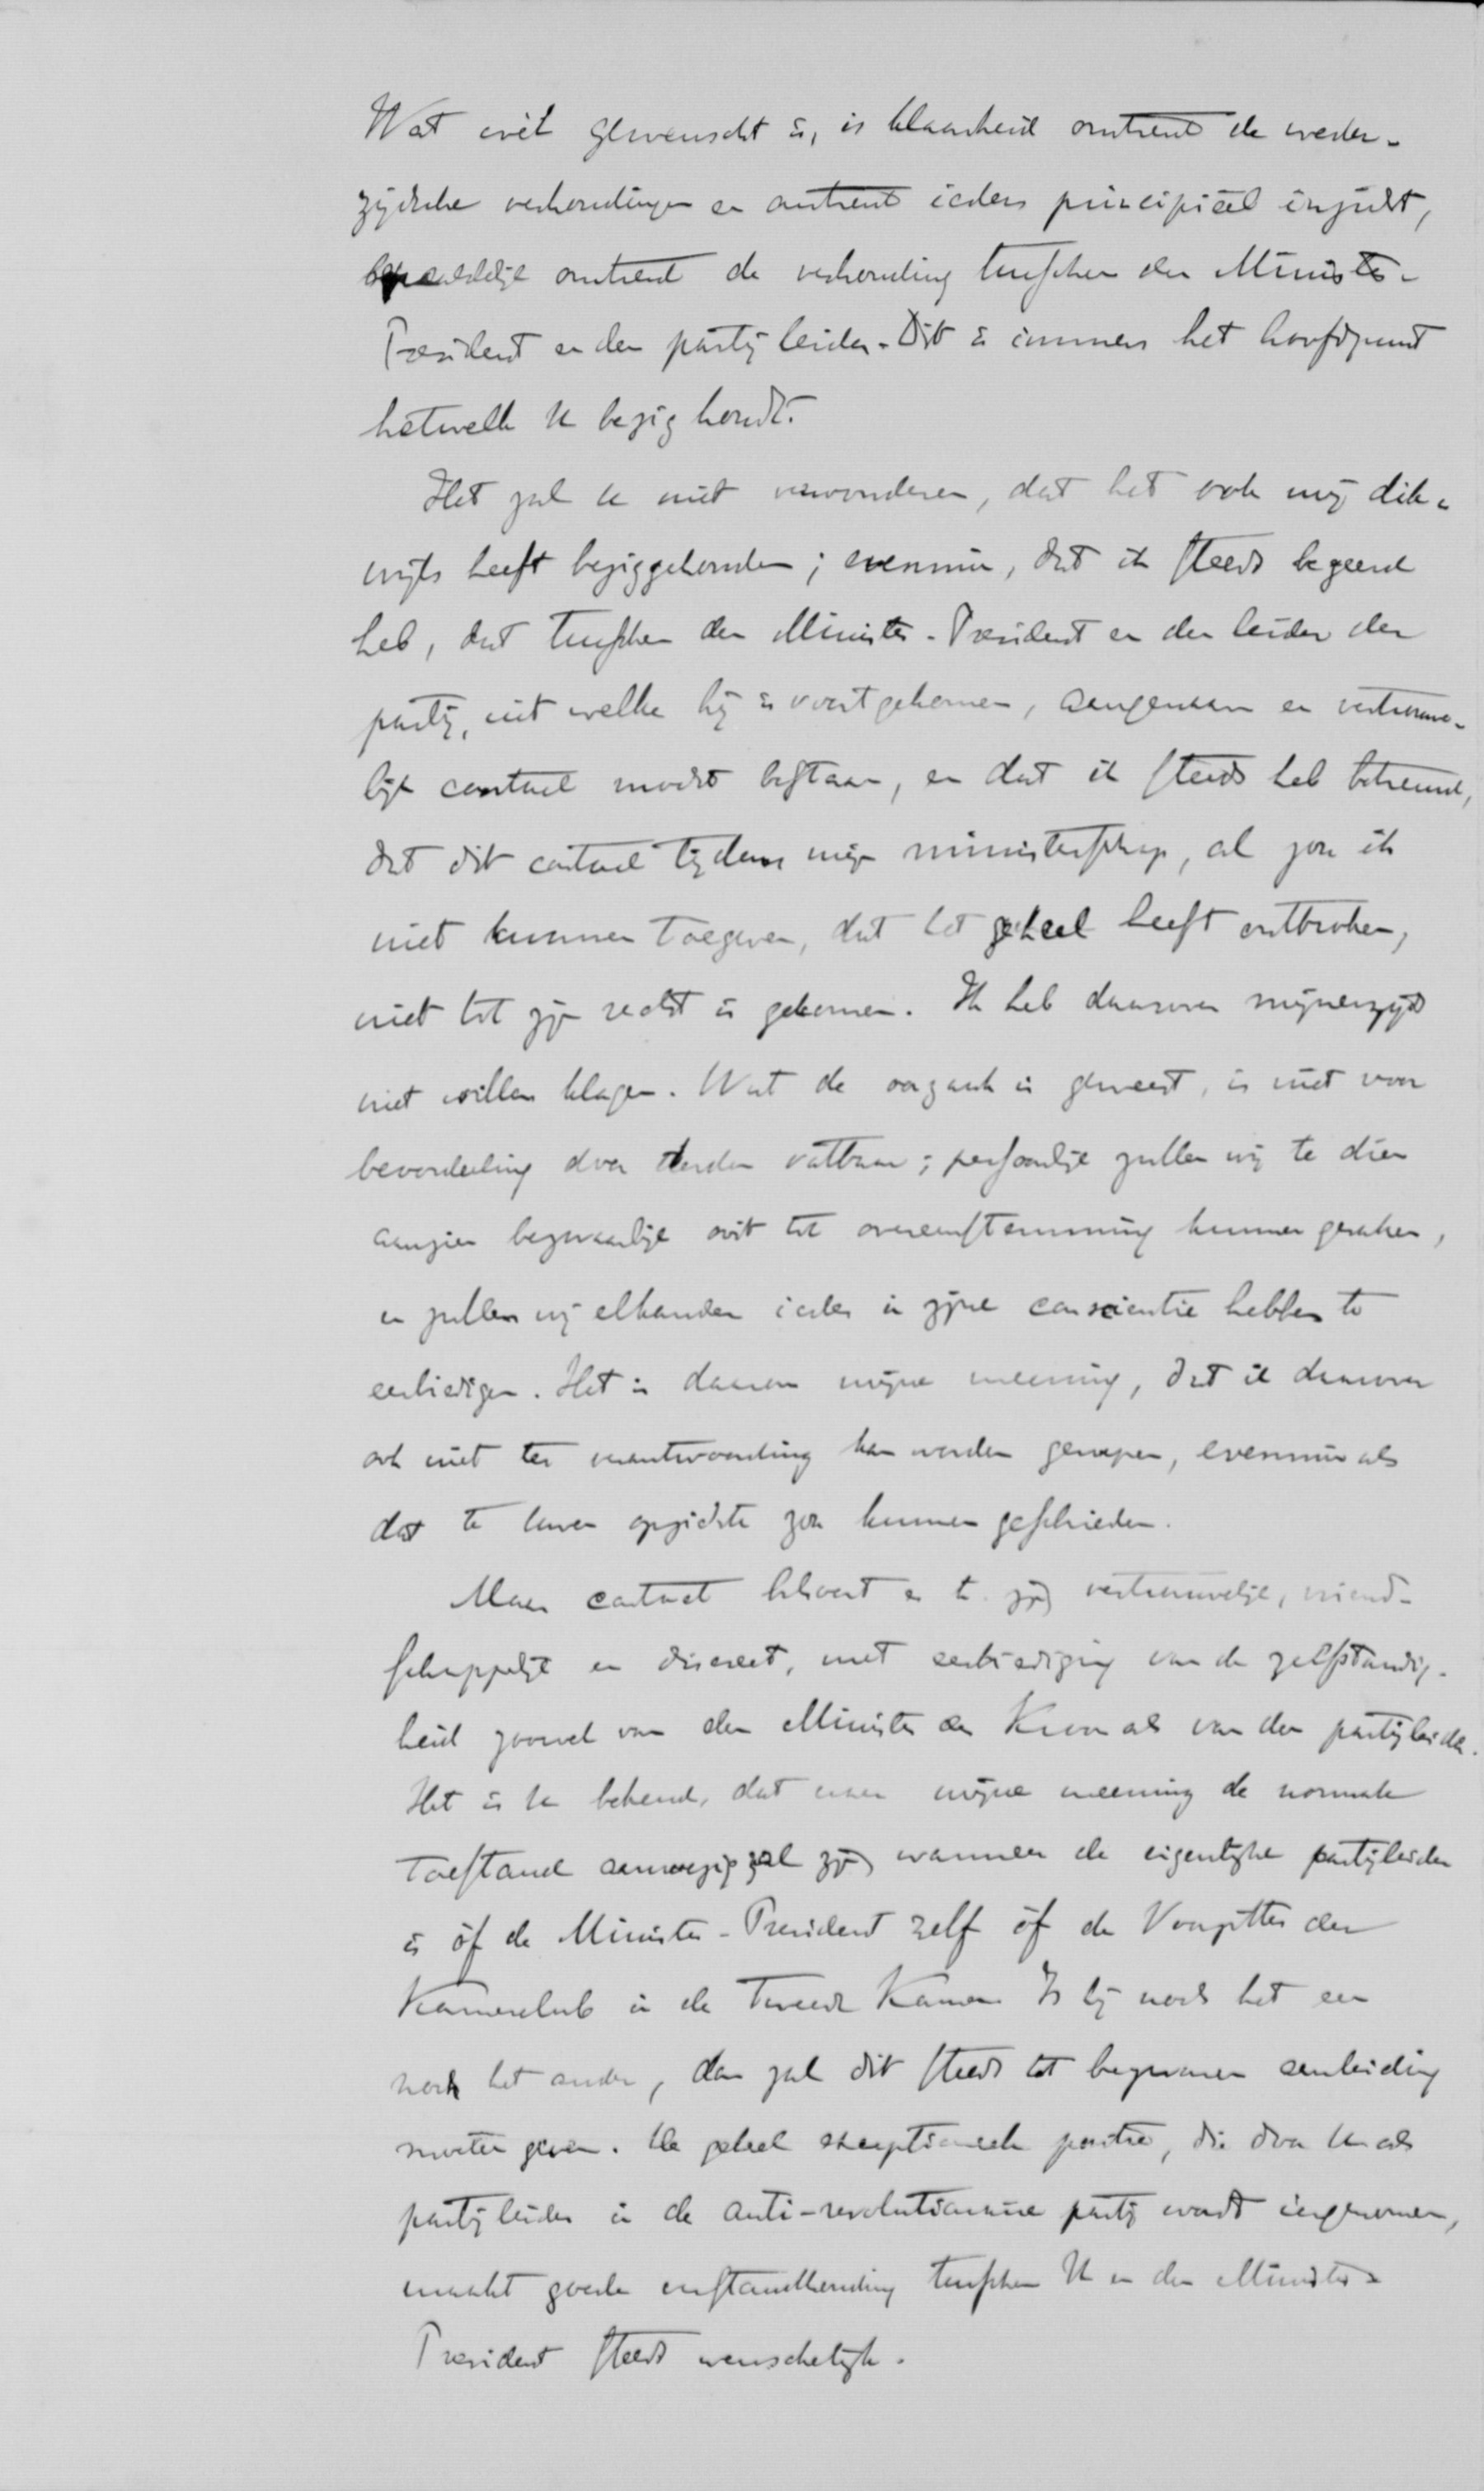 Wat wèl gewenscht is, is klaarheid omtrent de weder-
zijdsche verhoudingen en omtrent ieders principieel inzicht,
bepaaldelijk omtrent de verhouding tusschen den Minister-
President en den partijleider. Dit is immers het hoofdpunt
hetwelk U bezig houdt.
Het zal U niet verwonderen, dat het ook mij dik-
wijls heeft beziggehouden; evenmin, dat ik steeds begeerd
heb, dat tusschen den Minister-President en den leider der
partij, uit welke hij is voortgekomen, aangenaam en vertrouwe-
lijk contact mocht bestaan, en dat ik steeds heb betreurd,
dat dit contact tijdens mijn ministerschap, al zou ik
niet kunnen toegeven, dat het geheel heeft ontbroken,
niet tot zijn recht is gekomen. Ik heb daarover mijnerzijds
niet willen klagen. Wat de oorzaak is geweest, is niet voor
beoordeeling door derden vatbaar; persoonlijk zullen wij te dien
aanzien bezwaarlijk ooit tot overeenstemming kunnen geraken,
en zullen wij elkander ieder in zijne conscientie hebben te
eerbiedigen. Het is daarom mijne meening, dat ik daarover
ook niet ter verantwoording kan worden geroepen, evenmin als
dat te Uwen opzichte zou kunnen geschieden.
Maar contact behoort er te zijn, vertrouwelijk, vriend-
schappelijk en discreet, met eerbiediging van de zelfstandig-
heid zoowel van den Minister der Kroon als van den partijleider.
Het is U bekend, dat naar mijne meening de normale
toestand aanwezig zal zijn, wanneer de eigenlijke partijleider
is òf de Minister-President zelf òf de Voorzitter der
Kamerclub in de Tweede Kamer. Is hij noch het een
noch het ander, dan zal dit steeds tot bezwaren aanleiding
moeten geven. De geheel exceptioneele positie, die door U als
partijleider in de anti-revolutionaire partij wordt ingenomen,
maakt goede verstandhouding tusschen U en den Minister-
President steeds wenschelijk.